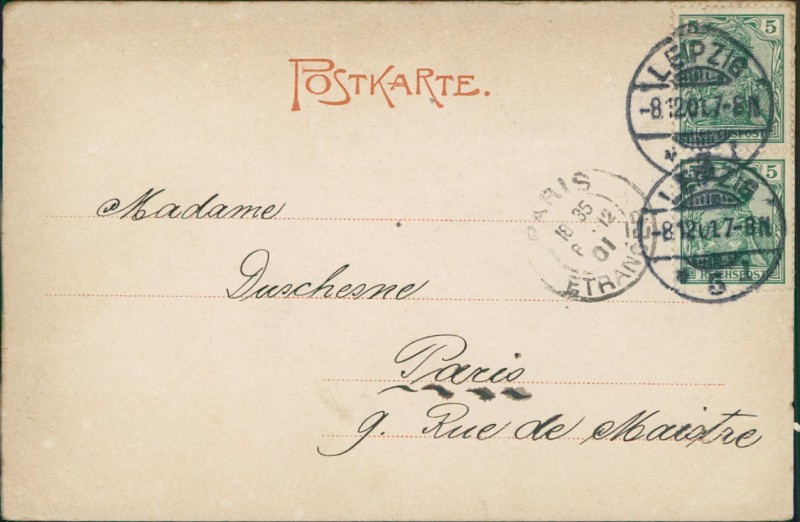 POSTKARTE.
5 5
LEIPZIG
-8.12.01.7-8N
REICHSPOST
5
LEIPZIG
-8.12.01.7-8N
5
REICHSPOST
PARIS
18 35
12
01
ETRANGER
Madame
Duschesne
Paris
9. Rue de Maistre